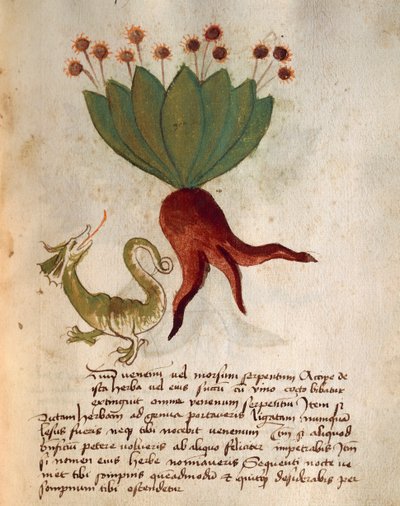 venenum vel morsum serpentum Accipe de
ista herba vel eius succu cu vino cocto bibatur
extinguit omne venenum serpentum Item si
dictam herbam ad genua portaveris ligatam numquam
lesus fueris neqz tibi nocebit venenum Item si aliquod
petere volueris ab aliquo feliciter impetrabis Item
si nomen eius herbe nominaveris sequenti nocte ve
niet tibi sompnis quicquid desiderabis per
sompnium tibi ostendetur